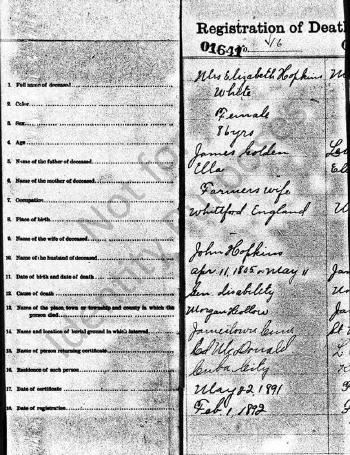 Registration of Deat
01641 No. 416
1. Full name of deceased
Mrs Elizabeth Hopkins
2. Color
White
3. Sex
Female
4. Age
86 yrs
5. Name of the father of deceased
James Golden
6. Name of the mother of deceased
Ella
7. Occupation
Farmers wife
8. Place of birth
Whitford England
9. Name of the wife of deceased
10. Name of the husband of deceased
John Hopkins
11. Date of birth and date of death
Apr 11, 1805 May 11
12. Cause of death
Gen. disability
13. Name of the place, town or township and county in which the person died
Morgan Hollow
14. Name and location of burial ground in which interred
Jamestown
15. Name of person returning certificate
McDonald
16. Residence of such person
Cuba City
17. Date of certificate
May 22 1891
18. Date of registration
Feb. 1, 1892
Not for
Identity Purposes